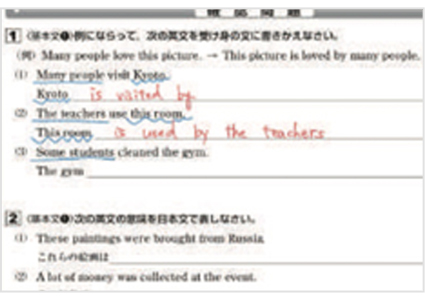 確認問題
1 (基本文①)例にならって、次の英文を受け身の文に書きかえなさい。
(例) Many people love this picture. → This picture is loved by many people.
(1) Many people visit Kyoto.
Kyoto is visited by
(2) The teachers use this room.
This room is used by the teachers
(3) Some students cleaned the gym.
The gym
2 (基本文①)次の英文の意味を日本文で表しなさい。
(1) These paintings were brought from Russia.
これらの絵画は
(2) A lot of money was collected at the event.